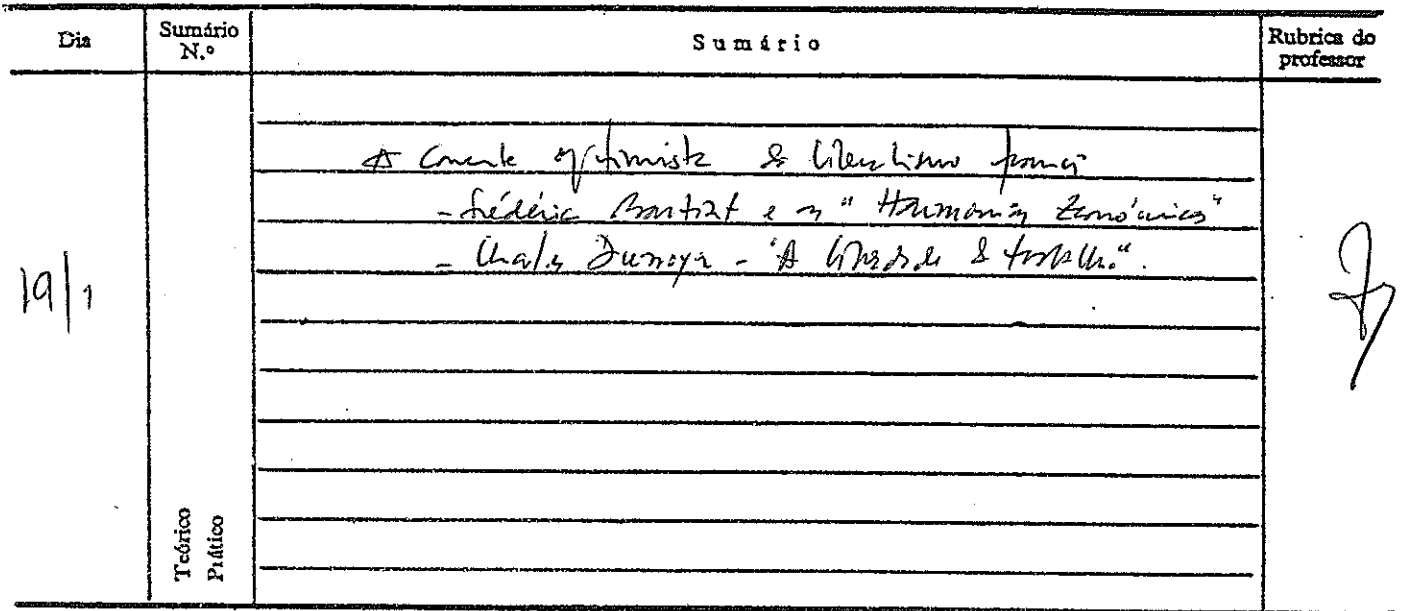 Dia
Sumário N.º
Sumário
Rubrica do professor
19/1
A Corrente optimista do liberalismo francês
- Frédéric Bastiat e as "Harmonias Económicas"
- Charles Dunoyer - "A liberdade do trabalho".
Teórico
Prático